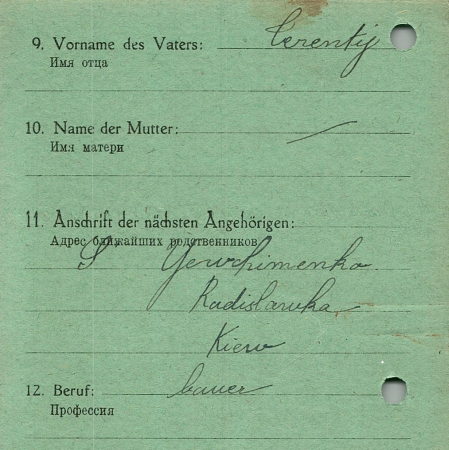 9. Vorname des Vaters: Terentij
Имя отца
10. Name der Mutter: —
Имя матери
11. Anschrift der nächsten Angehörigen:
Адрес ближайших родственников
S Yewchimenko
Radislawka
Kiew
12. Beruf: bauer
Профессия